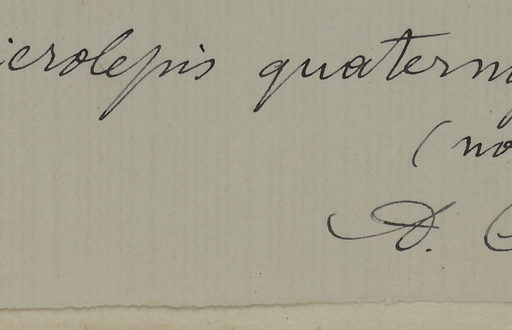 icrolepis quatern
(no
A.